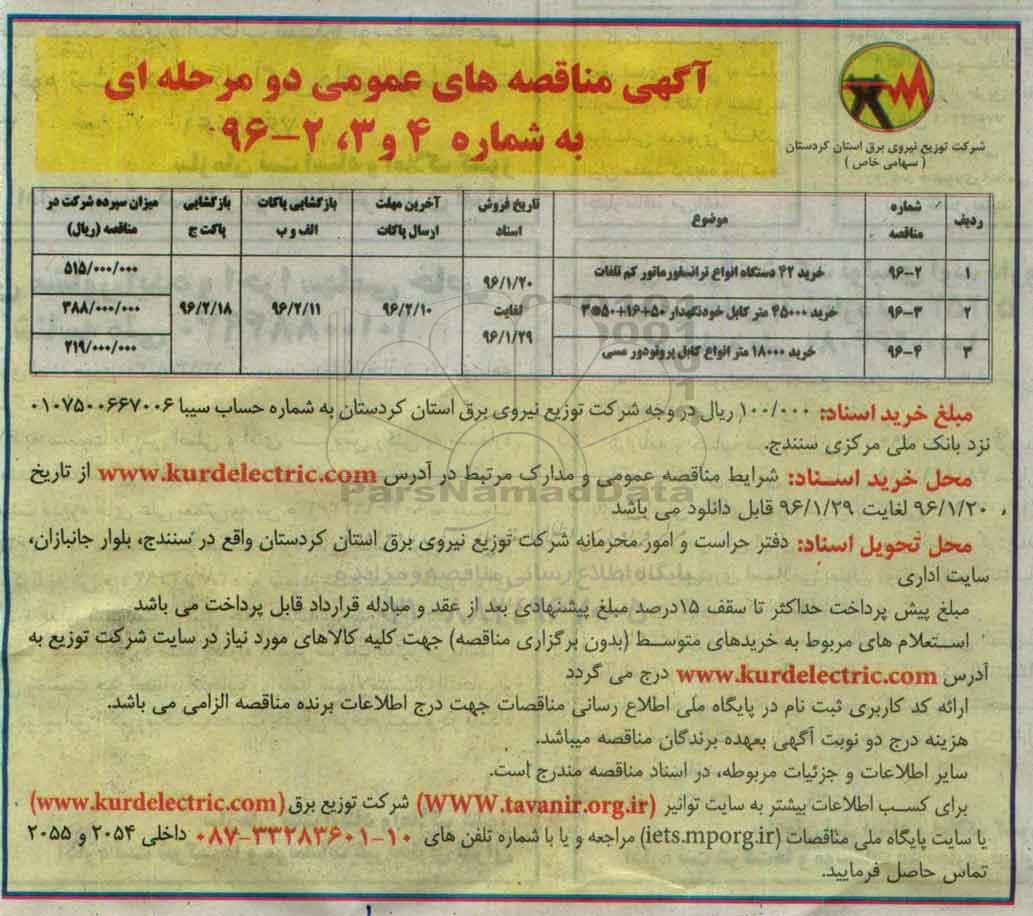 آگهی مناقصه های عمومی دو مرحله ای
به شماره ۴ و ۳، ۲-۹۶
شرکت توزیع نیروی برق استان کردستان
( سهامی خاص )
ردیف | شماره مناقصه | موضوع | تاریخ فروش اسناد | آخرین مهلت ارسال پاکات | بازگشایی پاکات الف و ب | بازگشایی پاکت ج | میزان سپرده شرکت در مناقصه (ریال)
۱ | ۹۶-۲ | خرید ۴۲ دستگاه انواع ترانسفورماتور کم تلفات | ۹۶/۱/۲۰ لغایت ۹۶/۱/۲۹ | ۹۶/۲/۱۰ | ۹۶/۲/۱۱ | ۹۶/۲/۱۸ | ۵۱۵/۰۰۰/۰۰۰
۲ | ۹۶-۳ | خرید ۴۵۰۰۰ متر کابل خودنگهدار ۵۰+۱۶+۵۰*۳ | ۳۸۸/۰۰۰/۰۰۰
۳ | ۹۶-۴ | خرید ۱۸۰۰۰ متر انواع کابل پروتودور مسی | ۲۱۹/۰۰۰/۰۰۰
مبلغ خرید اسناد: ۱۰۰/۰۰۰ ریال در وجه شرکت توزیع نیروی برق استان کردستان به شماره حساب سیبا ۰۱۰۷۵۰۰۶۶۷۰۰۶
نزد بانک ملی مرکزی سنندج.
محل خرید اسناد: شرایط مناقصه عمومی و مدارک مرتبط در آدرس www.kurdelectric.com از تاریخ
۹۶/۱/۲۰ لغایت ۹۶/۱/۲۹ قابل دانلود می باشد
محل تحویل اسناد: دفتر حراست و امور محرمانه شرکت توزیع نیروی برق استان کردستان واقع در سنندج، بلوار جانبازان،
سایت اداری
مبلغ پیش پرداخت حداکثر تا سقف ۱۵درصد مبلغ پیشنهادی بعد از عقد و مبادله قرارداد قابل پرداخت می باشد
استعلام های مربوط به خریدهای متوسط (بدون برگزاری مناقصه) جهت کلیه کالاهای مورد نیاز در سایت شرکت توزیع به
آدرس www.kurdelectric.com درج می گردد
ارائه کد کاربری ثبت نام در پایگاه ملی اطلاع رسانی مناقصات جهت درج اطلاعات برنده مناقصه الزامی می باشد.
هزینه درج دو نوبت آگهی بعهده برندگان مناقصه میباشد.
سایر اطلاعات و جزئیات مربوطه، در اسناد مناقصه مندرج است.
برای کسب اطلاعات بیشتر به سایت توانیر (WWW.tavanir.org.ir) شرکت توزیع برق (www.kurdelectric.com)
یا سایت پایگاه ملی مناقصات (iets.mporg.ir) مراجعه و یا با شماره تلفن های ۱۰-۰۸۷-۳۳۲۸۳۶۰۱ داخلی ۲۰۵۴ و ۲۰۵۵
تماس حاصل فرمایید.
ParsNamadData
پایگاه اطلاع رسانی مناقصه و مزایده